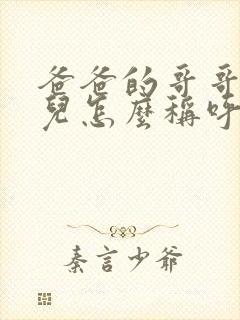 爸爸的哥哥
兒怎麼稱呼
秦言少爺